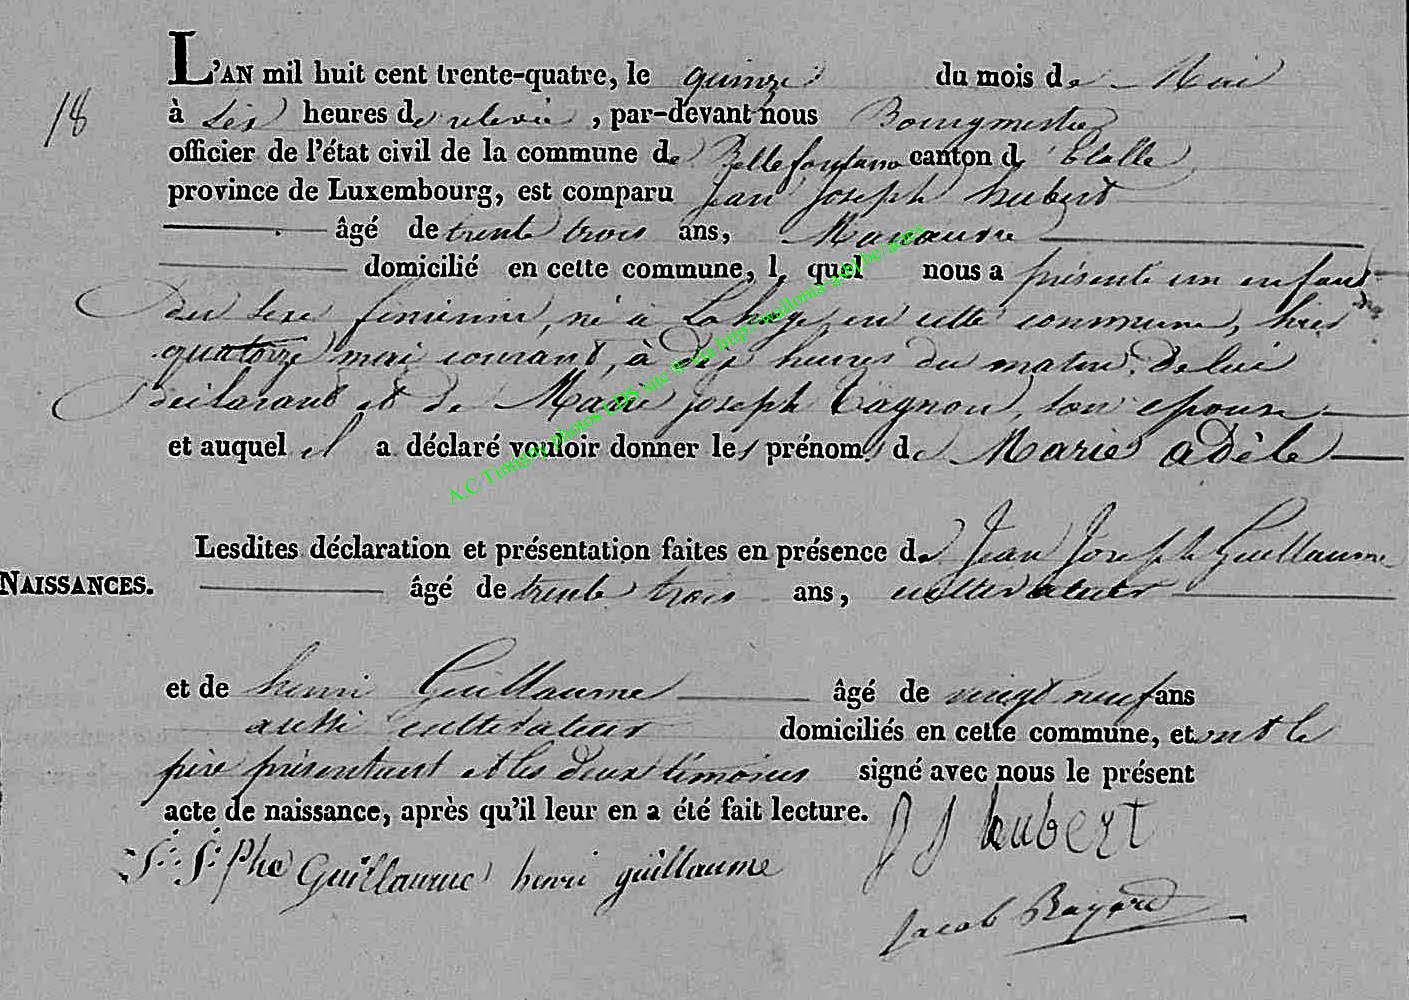 L'AN mil huit cent trente-quatre, le quinze du mois de Mai
18
à Six heures de relevée, par-devant nous Bourgmestre
officier de l'état civil de la commune de Bellefontaine canton d' Etalle
province de Luxembourg, est comparu Jean Joseph hubert
âgé de trente trois ans, Manœuvre
domicilié en cette commune, lequel nous a présenté un enfant
du sexe féminin, né à Lahage, en cette commune, hier
quatorze mai courant, à dix heures du matin, de lui
déclarant et de Marie Joseph Tagnon son épouse
et auquel il a déclaré vouloir donner les prénoms de Marie adèle
Lesdites déclaration et présentation faites en présence de Jean Joseph Guillaume
NAISSANCES.
âgé de trente trois ans, cultivateur
et de henri Guillaume âgé de vingt neuf ans
aussi cultivateur domiciliés en cette commune, et ont le
père présentant et les deux témoins signé avec nous le présent
acte de naissance, après qu'il leur en a été fait lecture.
J J hubert
Guillaume henri guillaume
Jacob Bayard
A.C Tintigny photos LDS site @ via http://wallonia-asbl.be/actes